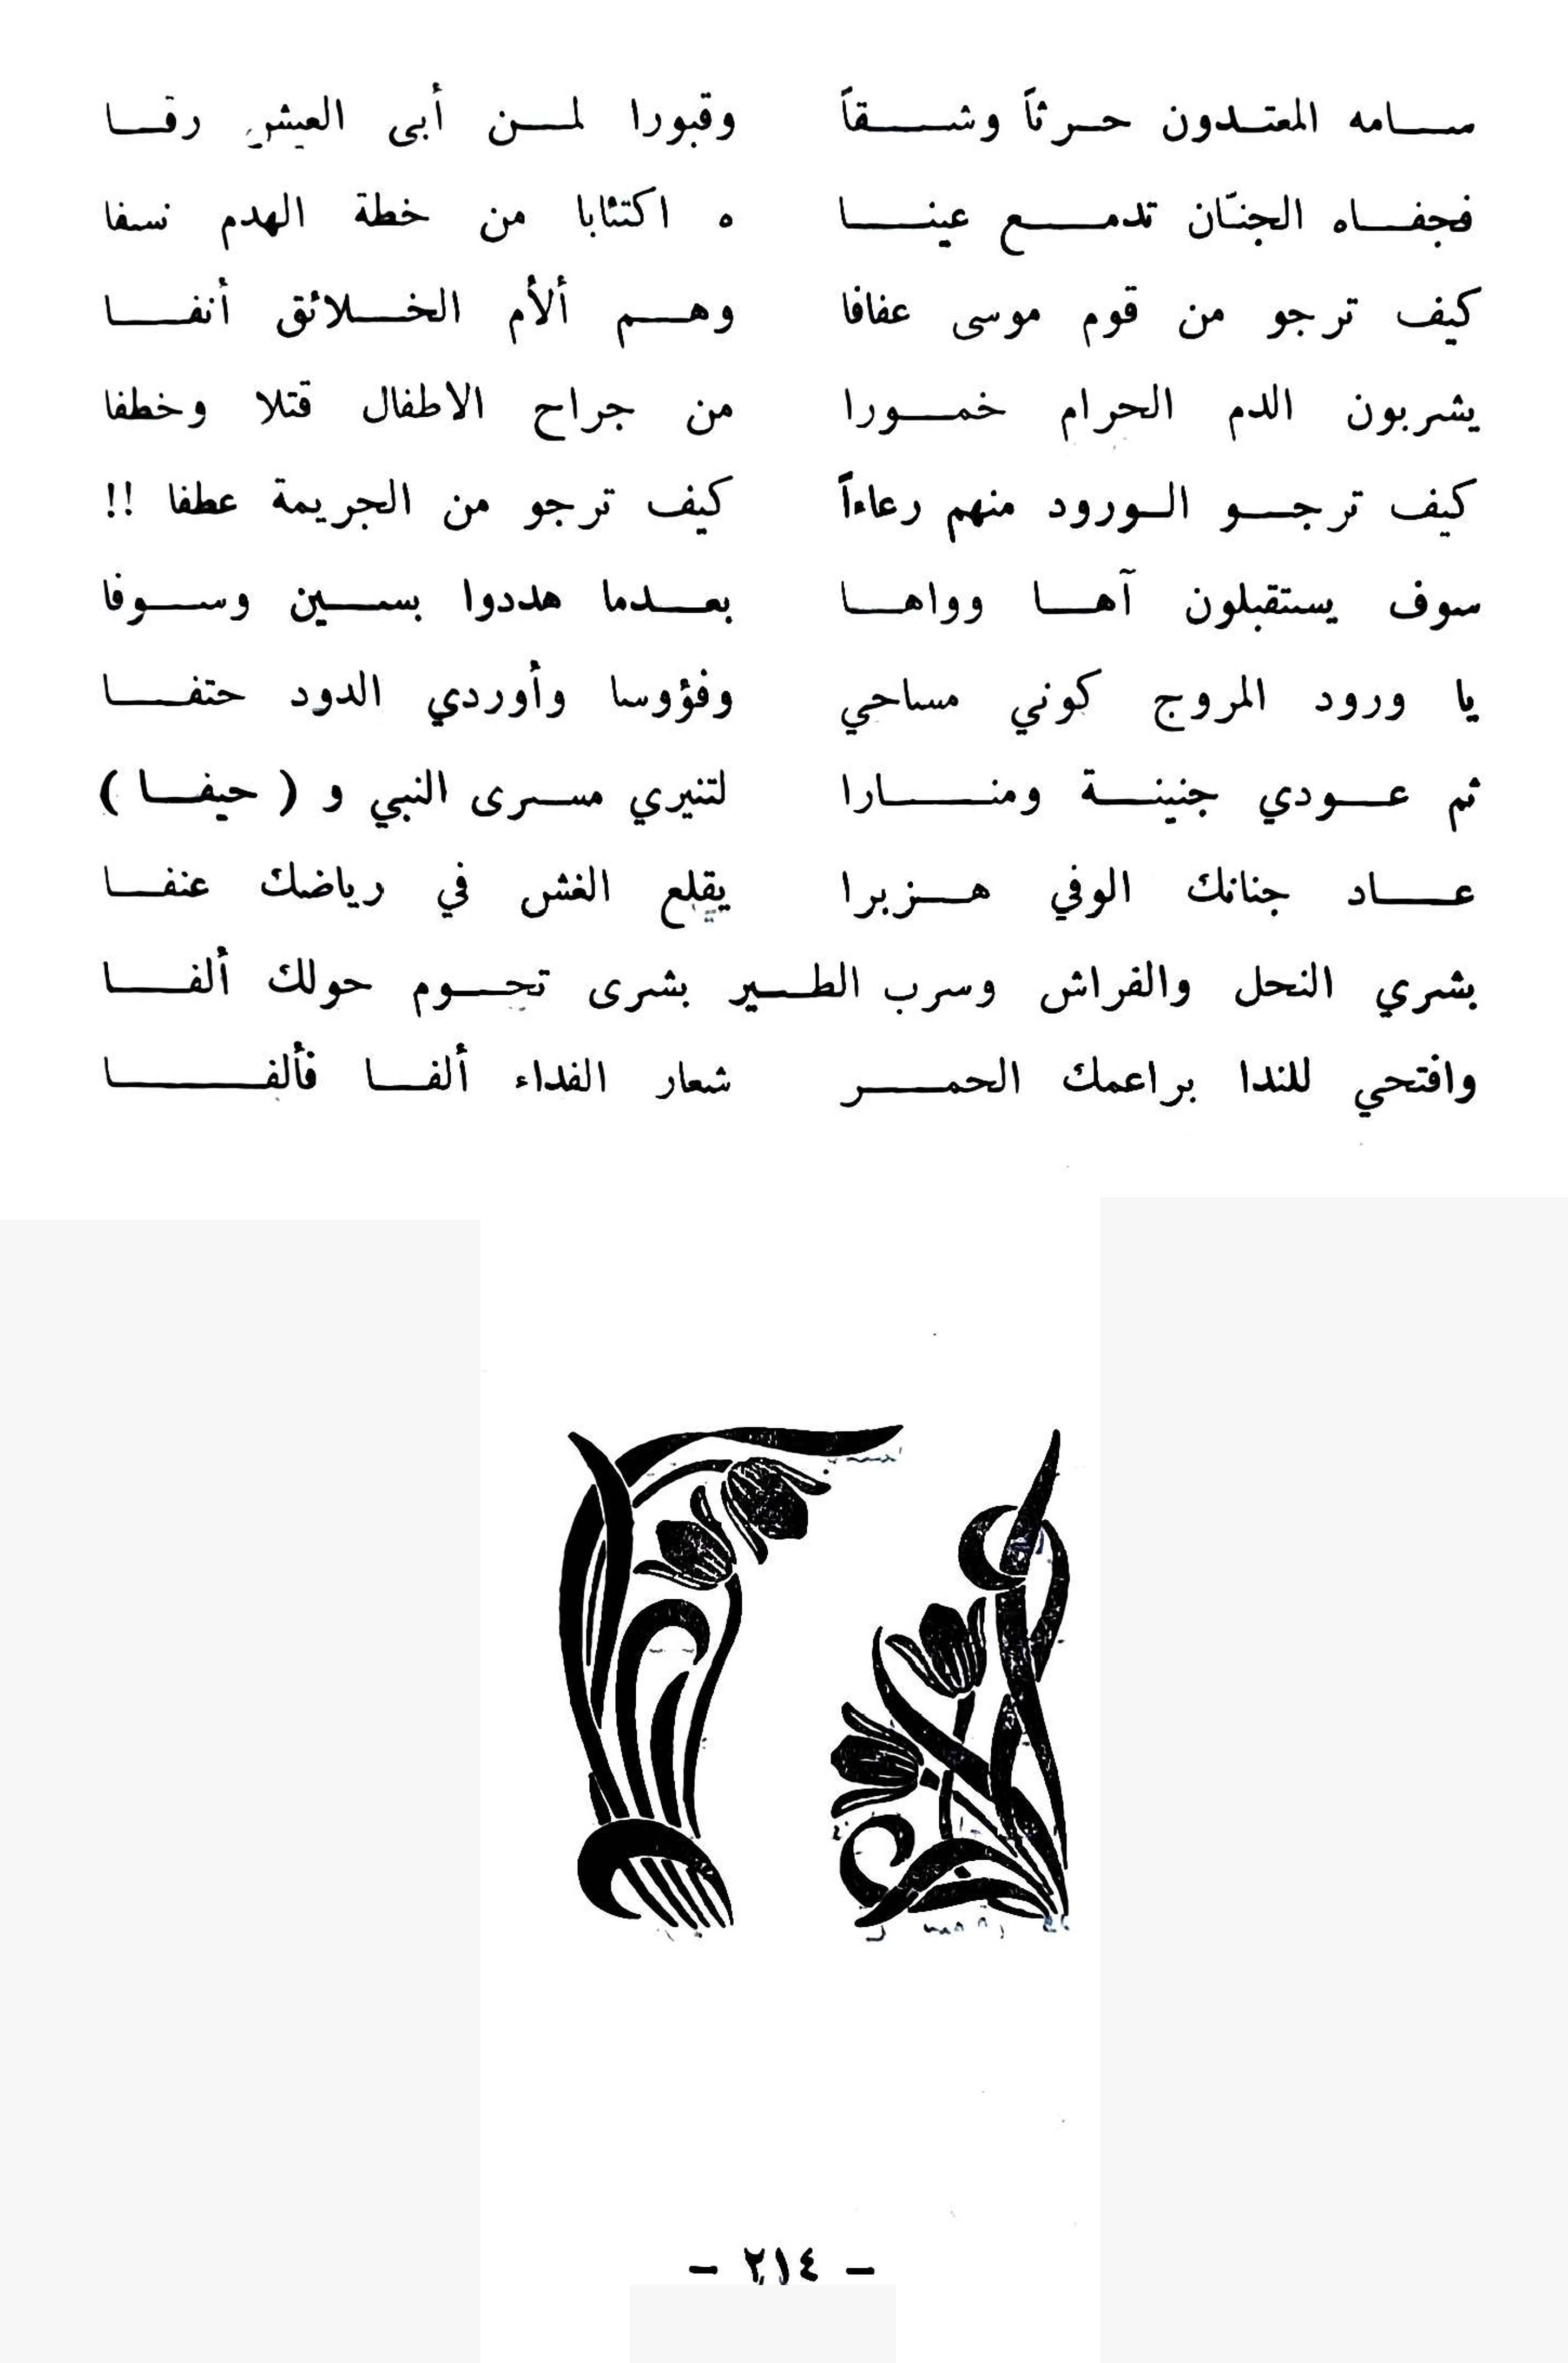 سامه المعتدون حرثاً وشقاً وقبورا لمن أبى العيش رقا
فجفاه الجنّان تدمع عينا ه اكتئابا من خطة الهدم نسفا
كيف ترجو من قوم موسى عفافا وهم ألأم الخلائق أنفا
يشربون الدم الحرام خمورا من جراح الاطفال قتلا وخطفا
كيف ترجو الورود منهم رعاءاً كيف ترجو من الجريمة عطفا !!
سوف يستقبلون آها وواها بعدما هددوا بسين وسوفا
يا ورود المروج كوني مساحي وفؤوسا وأوردي الدود حتفا
ثم عودي جنينة ومنارا لتنيري مسرى النبي و ( حيفا )
عاد جنانك الوفي هزبرا يقلع الغش في رياضك عنفا
بشري النحل والفراش وسرب الطير بشرى تحوم حولك ألفا
وافتحي للندا براعمك الحمر شعار الفداء ألفا فألفا
– ٢١٤ –